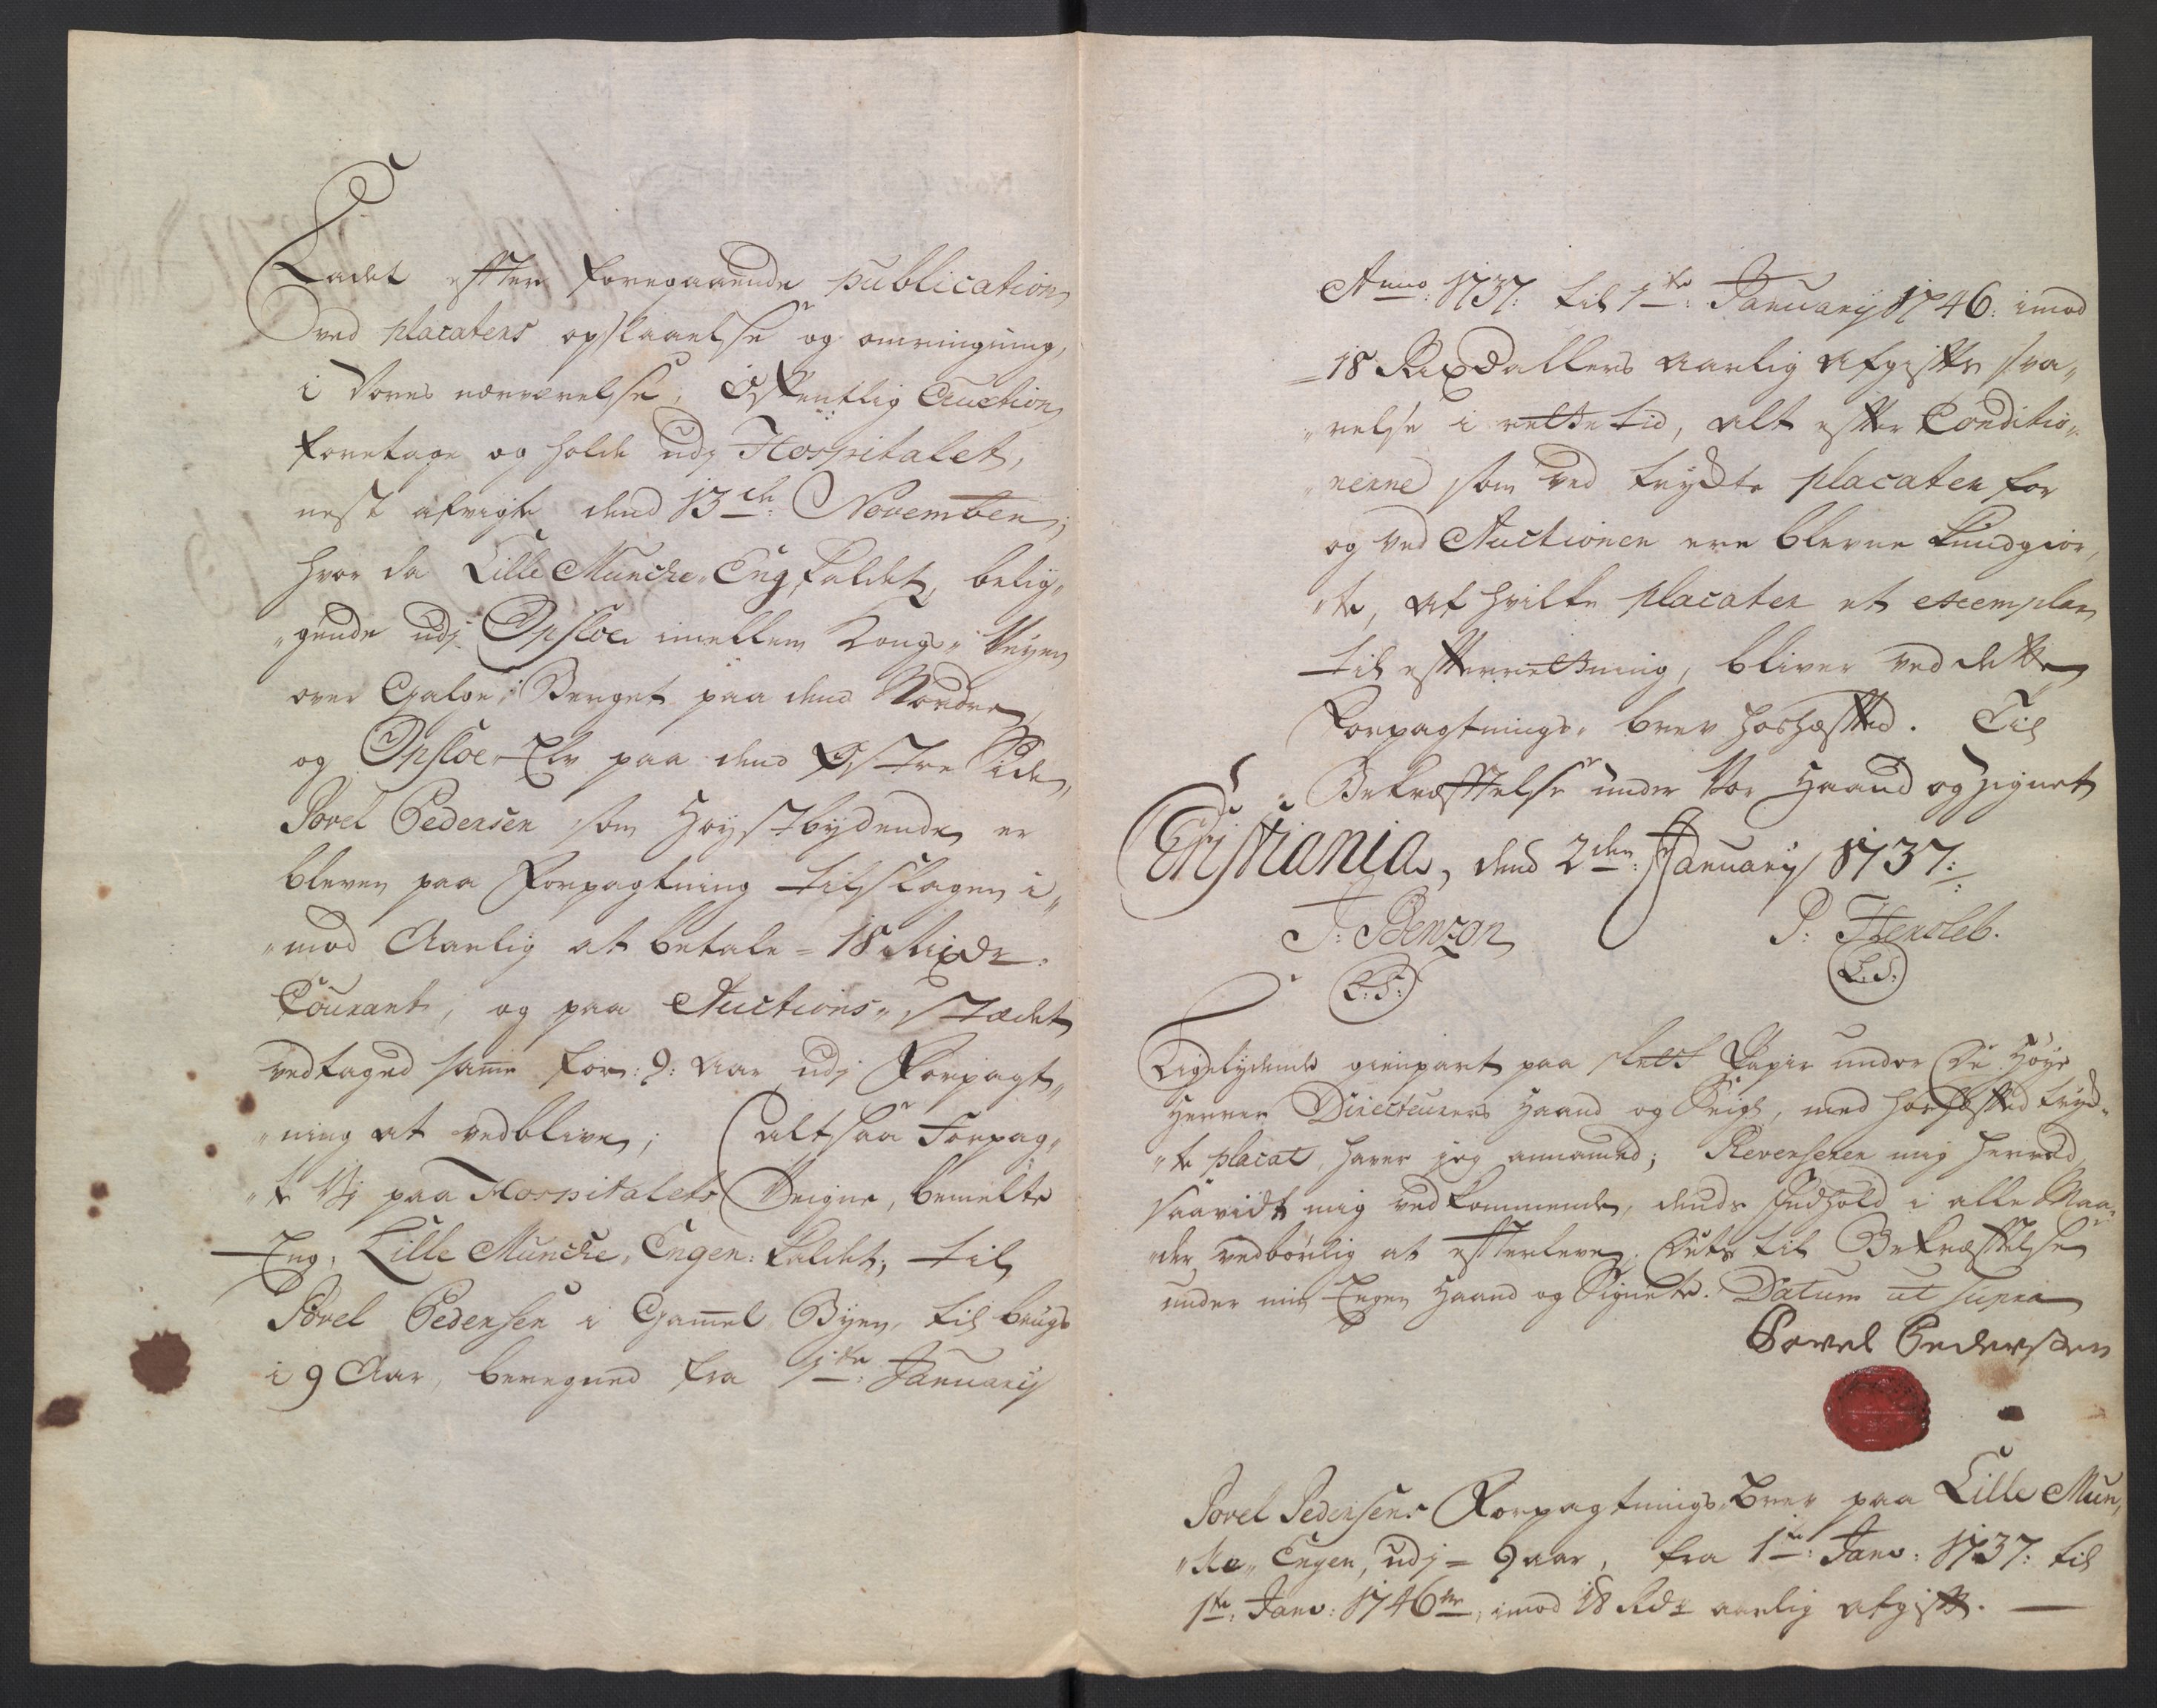 Ladet effter foregaaende publication
ved placaters opslaaelse og omringning,
i Vores nærværelse, Offentlig Auction
foretage og holde udj Hospitalet,
nest afvigte dend 13de: November;
hvor da Lille Muncke-Eng kaldet, belig„
„gende udj Opsloe imellem Kongs-Veyen
over Galge-Berget paa dend Nordre
og Opsloe-Elv paa dend Østre Side,
Povel Pedersen som Høystbydende er
bleven paa Forpagtning tilslagen i„
„mod Aarlig at betale = 18 Rixdr:
Courant, og paa Auctions-stædet
vedtaged samme for: 9: Aar udj Forpagt„
„ning at vedblive; altsaa Forpag„
„te Vj paa Hospitalets Veigne, bemelte
Eng, Lille Muncke-Engen: kaldet, til
Povel Pedersen i Gammel Byen, til brugs
i 9 Aar, beregned fra 1te: January
Anno: 1737: til 1te: January 1746: imod
=18 Rixdallers aarlig Afgiffts sva„
„relse i rette tid, alt effter Conditio„
„nerne som ved trykte placater for
og ved Auctionen ere blevne kundgior„
„te, af hvilke placater et exemplar
til effterretning, bliver ved dette
Forpagtnings-brev hoshæfftet. Til
Bekræfftelse under Vor Haand og Zignet
Christiania, dend 2den: January 1737:
J: Benzon P: Hersleb.
L:S: L.S:
Ligelydende gienpart paa slet Papir under De Høye
Herrer Directeurers Haand og Seigl, med hoshæffted tryk„
„te placat, haver jeg annammed; Reverserer mig herved
saavidt mig vedkommende, dends Indhold i alle Maa„
„der vedbørlig at effterleve; Dets til Bekræfftelse
under min Egen Haand og Signete. Datum ut supra
Povel Pedersen
Povel Pedersens Forpagtnings-Brev paa Lille Mun„
„ke„ Engen, udj = 9 aar, fra 1te: Janv: 1737: til
1te: Janv: 1746tve, imod 18 Rdr aarlig afgifft.